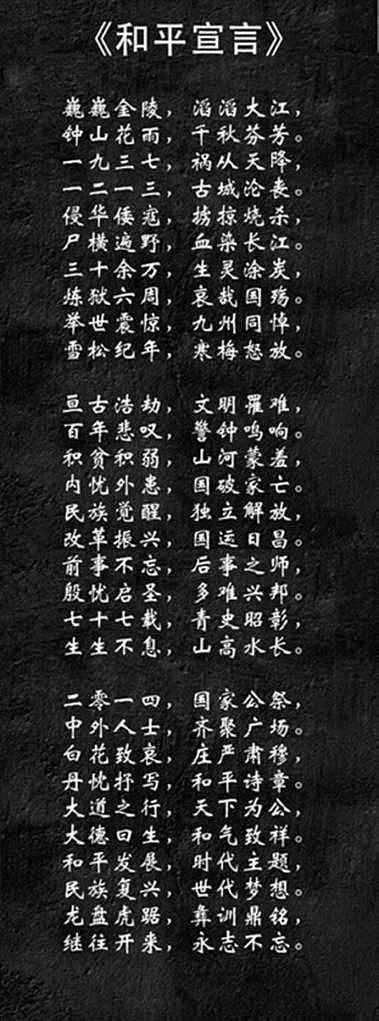 《和平宣言》
巍巍金陵，滔滔大江，
钟山花雨，千秋芬芳。
一九三七，祸从天降，
一二一三，古城沦丧。
侵华倭寇，掳掠烧杀，
尸横遍野，血染长江。
三十余万，生灵涂炭，
炼狱六周，哀哉国殇。
举世震惊，九州同悼，
雪松纪年，寒梅怒放。
亘古浩劫，文明罹难，
百年悲叹，警钟鸣响。
积贫积弱，山河蒙羞，
内忧外患，国破家亡。
民族觉醒，独立解放，
改革振兴，国运日昌。
前事不忘，后事之师，
殷忧启圣，多难兴邦。
七十七载，青史昭彰，
生生不息，山高水长。
二零一四，国家公祭，
中外人士，齐聚广场。
白花致哀，庄严肃穆，
丹忱抒写，和平诗章。
大道之行，天下为公，
大德曰生，和气致祥。
和平发展，时代主题，
民族复兴，世代梦想。
龙盘虎踞，彝训鼎铭，
继往开来，永志不忘。